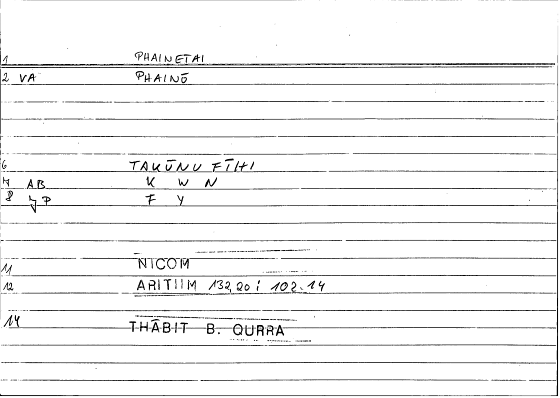 1 PHAINETAI
2 VA PHAINŌ
6 TAKŪNU FĪHI
7 AB K W N
8 P F Y
11 NICOM
12 ARITIIM 132,20 : 102.14
14 THĀBIT B. QURRA